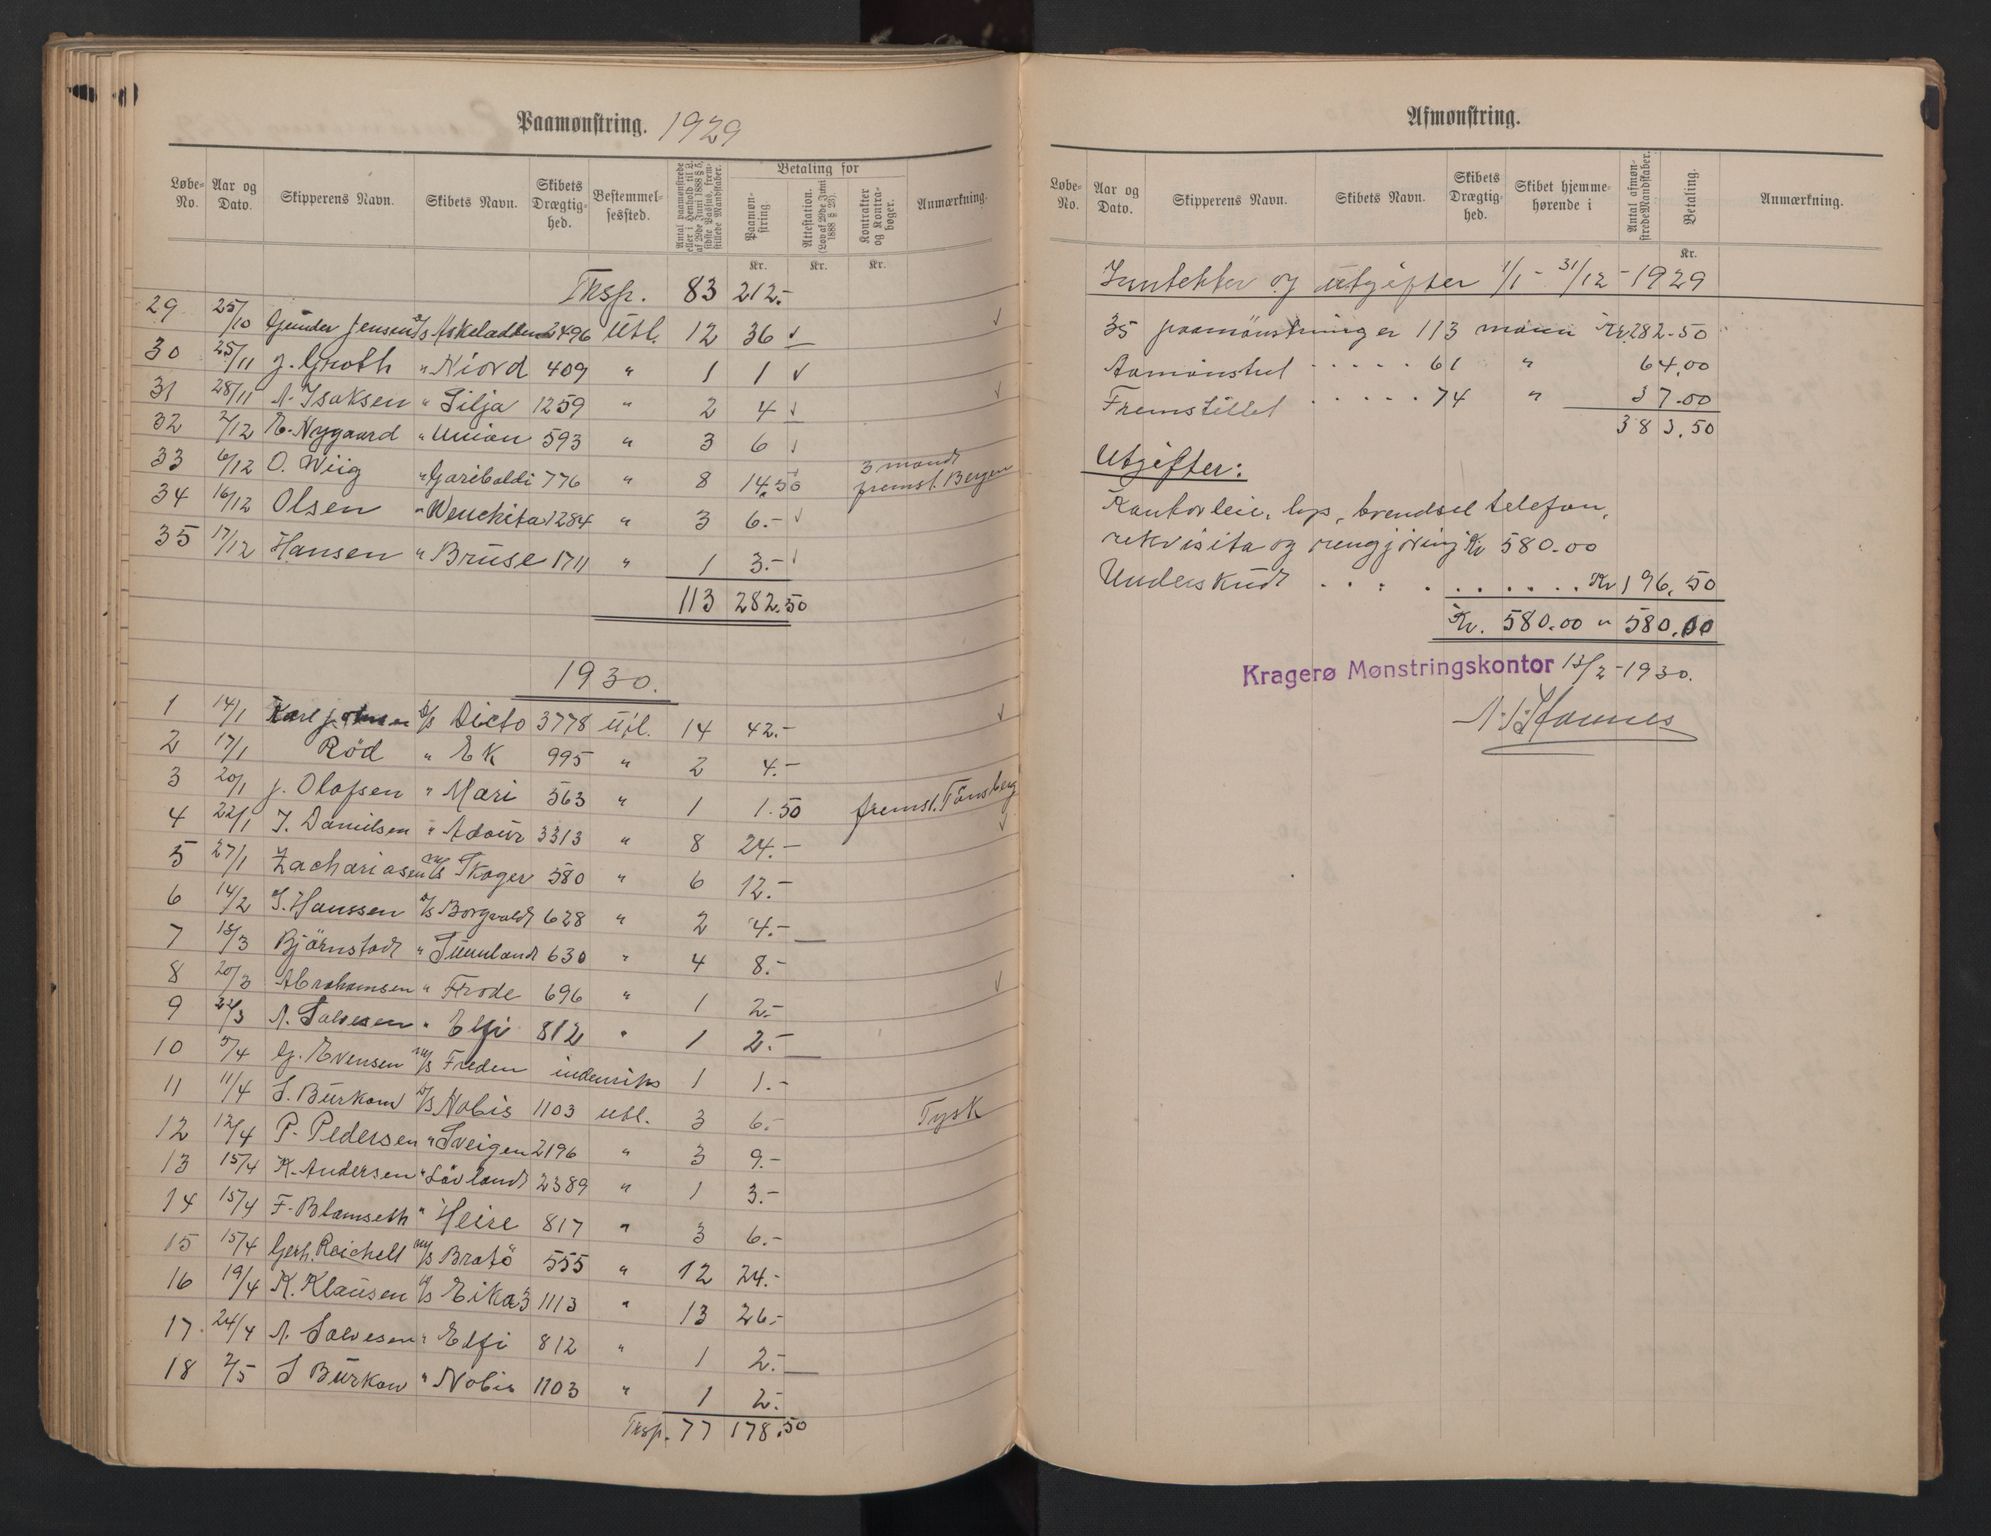 Paamønstring. 1929
Løbe-No. | Aar og Dato. | Skipperens Navn. | Skibets Navn. | Skibets Drægtig-hed. | Bestemmel-sessted. | Antal paamønstrede eller i Henhold til L. af 29de Juni 1888 § 5, sidste Passus, frem-stillede Mandskaber. | Betaling for | Paamøn-string. Kr. | Attestation. (Lov af 29de Juni 1888 § 23). Kr. | Kontrakter og Kontra-bøger. Kr. | Anmærkning.
Trsp. 83 212.-
29 25/10 Gunder Jensen S/S Askeladden 2496 Utl. 12 36 ✓
30 25/11 J. Groth " Niord 409 " 1 1 ✓
31 28/11 A. Isaksen " Silja 1259 " 2 4 ✓
32 2/12 E. Nygaard " Union 593 " 3 6 ✓
33 6/12 O. Wiig " Garibaldi 776 " 8 14.50 3 mand fremst. Bergen
34 16/12 Olsen " Wenchita 1284 " 3 6.- ✓
35 17/12 Hansen " Bruse 1711 " 1 3.- ✓
113 282.50
1930.
1 14/1 Karl Johnsen S/S Dicto 3778 Utl. 14 42.-
2 17/1 Röd " Ek 995 " 2 4.-
3 20/1 J. Olafsen " Mari 563 " 1 1.50 fremst. Tönsberg
4 22/1 J. Danielsen " Adour 3313 " 8 24.-
5 27/1 Zachariasen M/S Skager 580 " 6 12.-
6 14/2 J. Hanssen S/S Borgvald 628 " 2 4.-
7 13/3 Björnstad " Sunnland 630 " 4 8.-
8 20/3 Abrahamsen " Frode 696 " 1 2.-
9 22/3 A. Salvesen " Elfi 812 " 1 2.-
10 5/4 G. Evensen M/S Freden indenriks 1 1.-
11 11/4 S. Burkow S/S Nobis 1103 utl. 3 6.- Tysk
12 12/4 P. Pedersen " Sveigen 2196 " 3 9.-
13 15/4 K. Andersen " Lövland 2389 " 1 3.-
14 15/4 F. Blamseth " Heire 817 " 3 6.-
15 15/4 Gerh. Reichelt M/S Bratö 555 " 12 24.-
16 19/4 K. Klausen S/S Eika 3 1113 " 13 26.-
17. 24/4 A. Salvesen " Elfi 812 " 1 2.-
18 2/5 S Burkow " Nobis 1103 " 1 2.-
Trsp. 77 178.50
Afmønstring.
Løbe-No. | Aar og Dato. | Skipperens Navn. | Skibets Navn. | Skibets Drægtig-hed. | Skibet hjemme-hørende i | Antal afmøn-strede Mandskaber. | Betaling. Kr. | Anmærkning.
Inntekter og utgifter 1/1 - 31/12 - 1929
35 paamönstringer 113 mann Kr. 282.50
Avmönstret . . . . . 61 " 64.00
Fremstillet . . . . . 74 " 37.00
383.50
Utgifter:
Kontorleie, lys, brendsel telefon,
rekvisita og rengjöring Kr 580.00
Underskudt . . . . . . . . . . Kr 196.50
Kr. 580.00 " 580.00
Kragerø Mønstringskontor 13/2-1930.